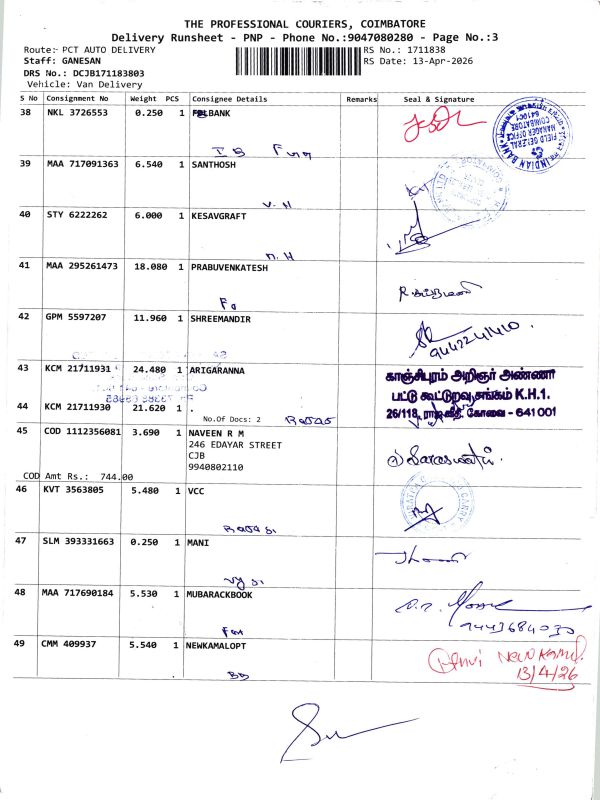 THE PROFESSIONAL COURIERS, COIMBATORE
Delivery Runsheet - PNP - Phone No.:9047080280 - Page No.:3
Route: PCT AUTO DELIVERY
RS No.: 1711838
Staff: GANESAN
RS Date: 13-Apr-2026
DRS No.: DCJB171183803
Vehicle: Van Delivery
S No Consignment No Weight PCS Consignee Details Remarks Seal & Signature
38 NKL 3726553 0.250 1 BANK
INDIAN BANK
FIELD GENERAL
MANAGER OFFICE
COIMBATORE
39 MAA 717091363 6.540 1 SANTHOSH
V. H
40 STY 6222262 6.000 1 KESAVGRAFT
n. H
41 MAA 295261473 18.080 1 PRABUVENKATESH
42 GPM 5597207 11.960 1 SHREEMANDIR
9443241410.
43 KCM 21711931 24.480 1 ARIGARANNA
காஞ்சிபுரம் அறிஞர் அண்ணா
பட்டு கூட்டுறவு சங்கம் K.H.1.
26/118, ராஜ வீதி, கோவை - 641001
44 KCM 21711930 21.620 1 .
No.Of Docs: 2
45 COD 1112356081 3.690 1 NAVEEN R M
246 EDAYAR STREET
CJB
9940802110
Saraswathi.
COD Amt Rs.: 744.00
46 KVT 3563805 5.480 1 VCC
47 SLM 393331663 0.250 1 MANI
48 MAA 717690184 5.530 1 MUBARACKBOOK
9443684030
49 CMM 409937 5.540 1 NEWKAMALOPT
New Kamal.
13/4/26